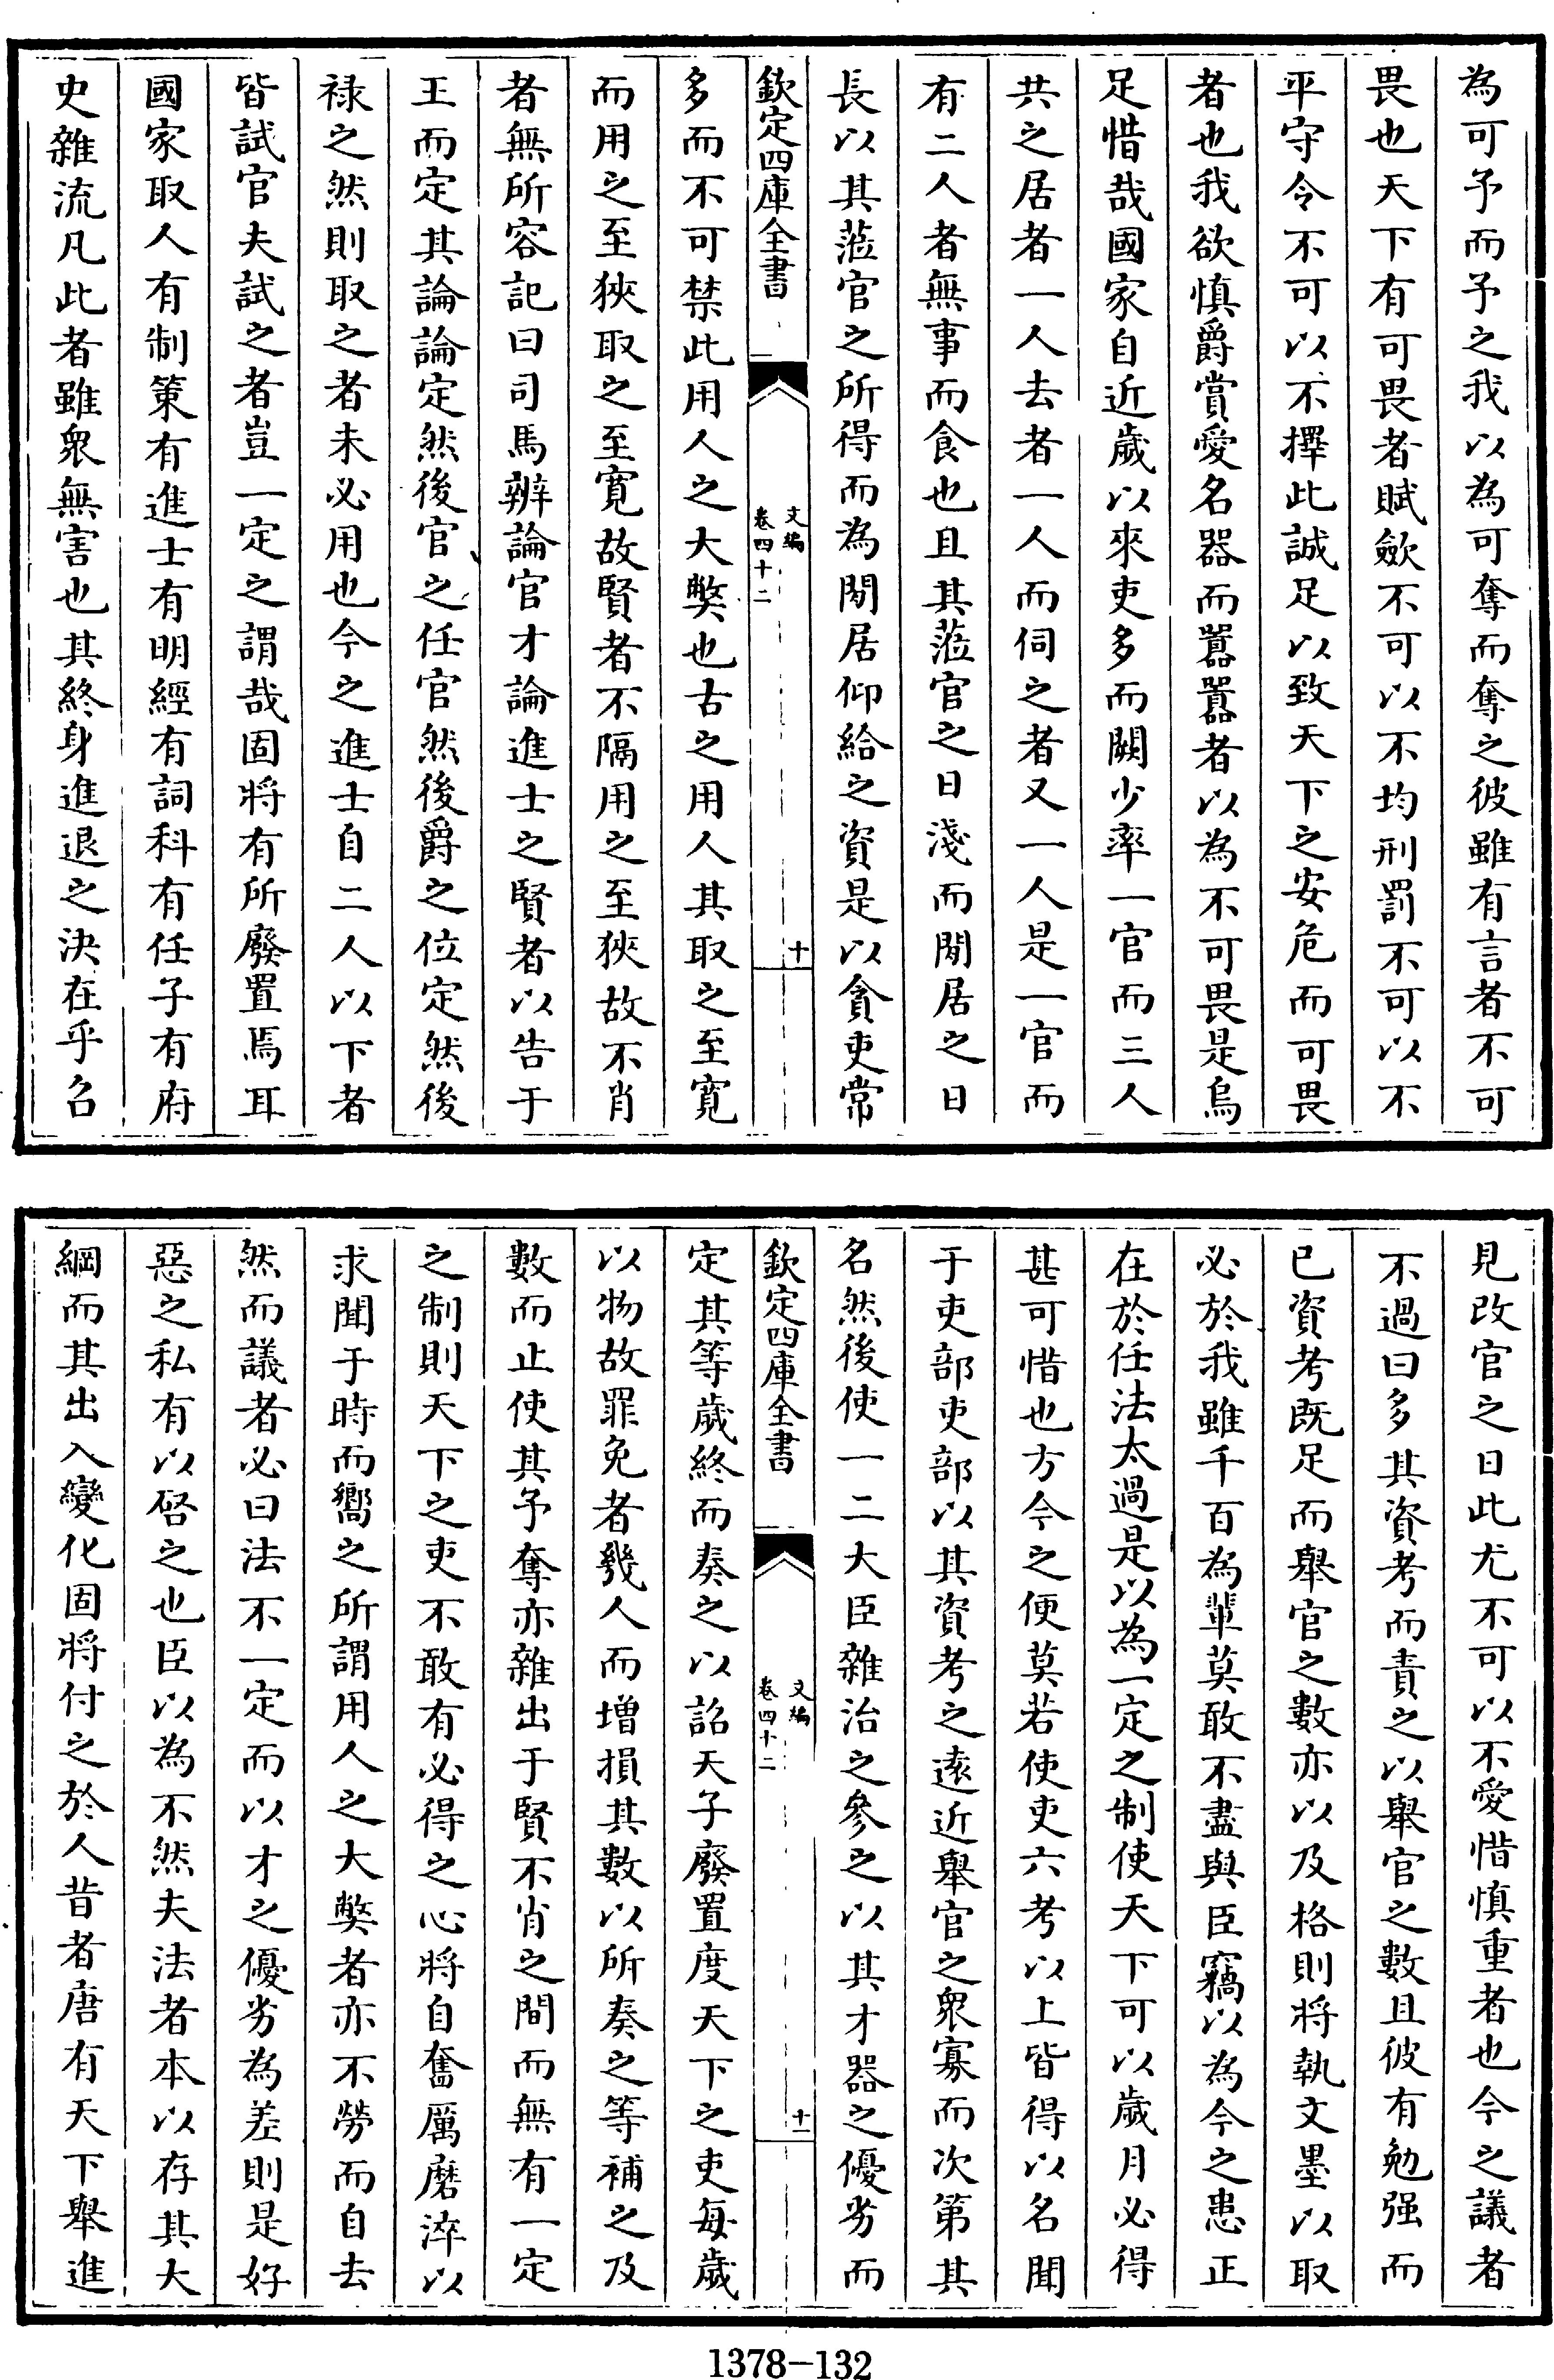 為可予而予之我以為可奪而奪之彼雖有言者不可
畏也天下有可畏者賦歛不可以不均刑罰不可以不
平守令不可以不擇此誠足以致天下之安危而可畏
者也我欲慎爵賞愛名器而囂囂者以為不可畏是烏
足惜哉國家自近歲以來吏多而闕少率一官而三人
共之居者一人去者一人而伺之者又一人是一官而
有二人者無事而食也且其蒞官之日淺而閒居之日
長以其蒞官之所得而為閒居仰給之資是以貪吏常
欽定四庫全書
文編
卷四十二
十
多而不可禁此用人之大弊也古之用人其取之至寛
而用之至狹取之至寛故賢者不隔用之至狹故不肖
者無所容記曰司馬辨論官才論進士之賢者以告于
王而定其論論定然後官之任官然後爵之位定然後
祿之然則取之者未必用也今之進士自二人以下者
皆試官夫試之者豈一定之謂哉固將有所廢置焉耳
國家取人有制策有進士有明經有詞科有任子有府
史雜流凡此者雖衆無害也其終身進退之決在乎召
見改官之日此尤不可以不愛惜慎重者也今之議者
不過曰多其資考而責之以舉官之數且彼有勉强而
已資考既足而舉官之數亦以及格則將執文墨以取
必於我雖千百為輩莫敢不盡與臣竊以為今之患正
在於任法太過是以為一定之制使天下可以歲月必得
甚可惜也方今之便莫若使吏六考以上皆得以名聞
于吏部吏部以其資考之遠近舉官之衆寡而次第其
名然後使一二大臣雜治之參之以其才器之優劣而
欽定四庫全書
文編
卷四十二
十一
定其等歲終而奏之以詔天子廢置度天下之吏每歲
以物故罪免者幾人而増損其數以所奏之等補之及
數而止使其予奪亦雜出于賢不肖之間而無有一定
之制則天下之吏不敢有必得之心將自奮厲磨淬以
求聞于時而嚮之所謂用人之大弊者亦不勞而自去
然而議者必曰法不一定而以才之優劣為差則是好
惡之私有以啓之也臣以為不然夫法者本以存其大
綱而其出入變化固將付之於人昔者唐有天下舉進
1378-132